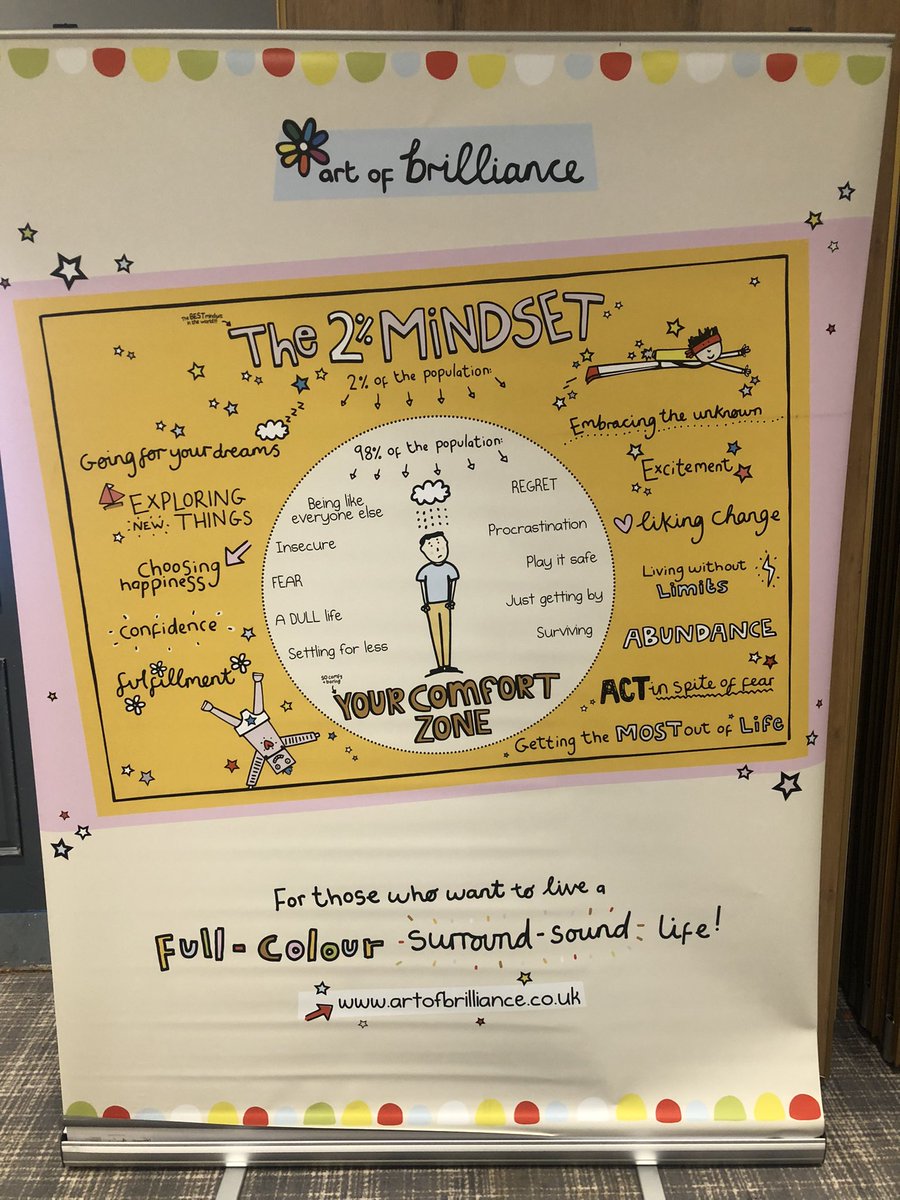 art of brilliance
The BEST mindset
in the world!!!
The 2% MINDSET
2% of the population:
Going for your dreams
zzz
EXPLORING
NEW THINGS
Choosing
happiness
confidence
fulfillment
98% of the population:
Being like
everyone else
Insecure
FEAR
A DULL life
Settling for less
REGRET
Procrastination
Play it safe
Just getting by
Surviving
SO comfy
+ boring
YOUR COMFORT
ZONE
Embracing the unknown
Excitement
liking change
Living without
Limits
ABUNDANCE
ACT in spite of fear
Getting the MOST out of Life
For those who want to live a
Full-Colour-surround-sound-life!
www.artofbrilliance.co.uk